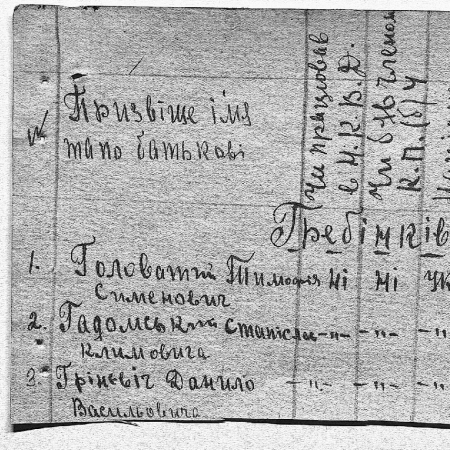 № Призвіще імя
та по батькові
Чи працював
в Н.К.В.Д.
Чи був членом
К.П.(б)У
Гребінків
1. Головатий Тимофія Ні Ні Ук
Сименович
2. Гадомський Станісла -"- -"- -"-
Климовича
3. Грінєвіч Данило -"- -"- -"-
Васильовича